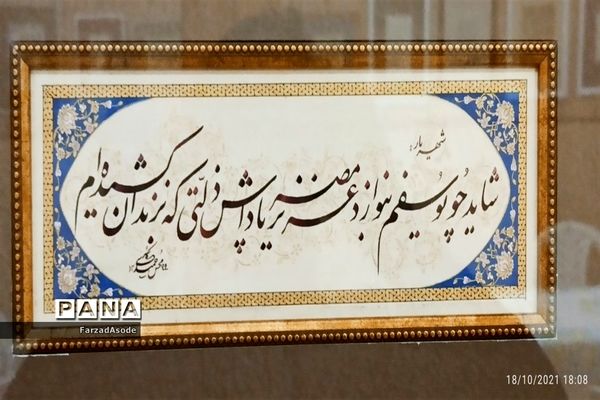 شهریار:
شاید چو یوسفم بنوازد عزیز مصر پاداش ذلتی که بزندان کشیده‌ام
PANA
FarzadAsode
18/10/2021 18:08